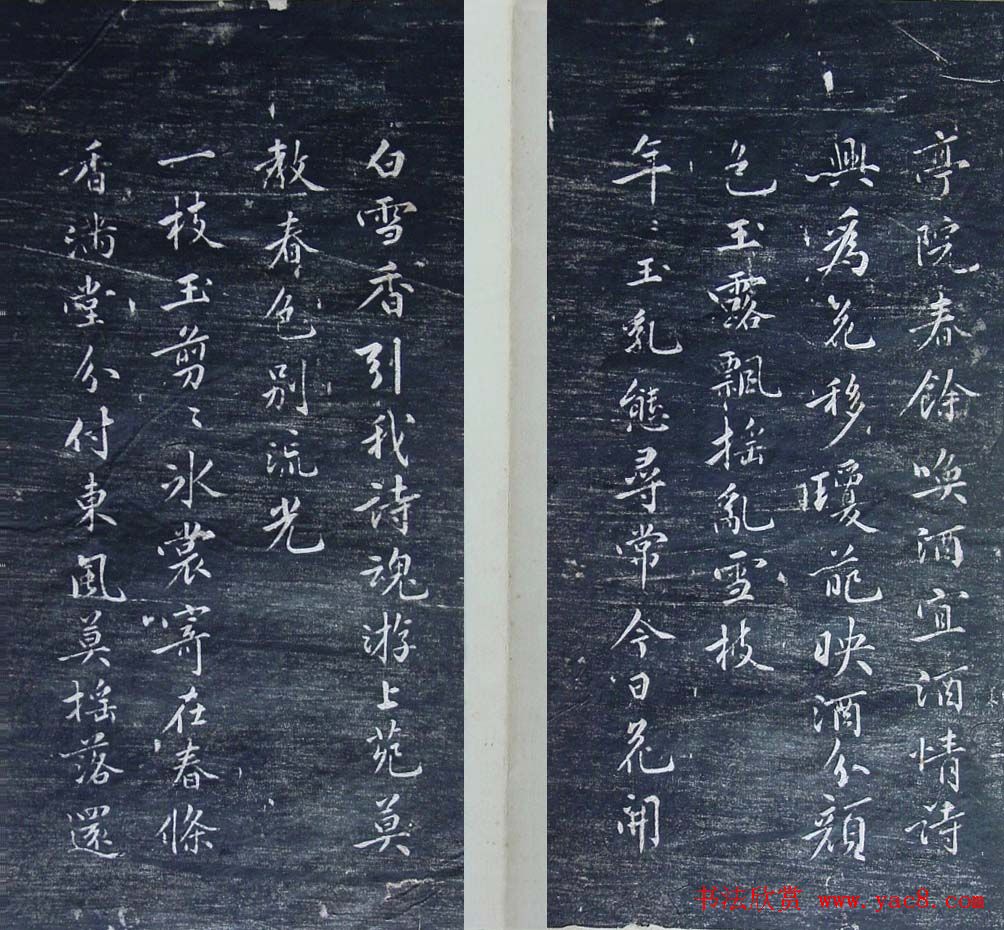 亭院春餘喚酒宜酒情詩
興為花移瓊葩映酒分顏
色玉露飄搖亂雪枝
年〻玉乳態尋常今日花開
白雪香引我詩魂游上苑莫
教春色別流光
一枝玉剪〻冰裳寄在春條
香滿堂分付東風莫搖落還
书法欣赏 www.yac8.com